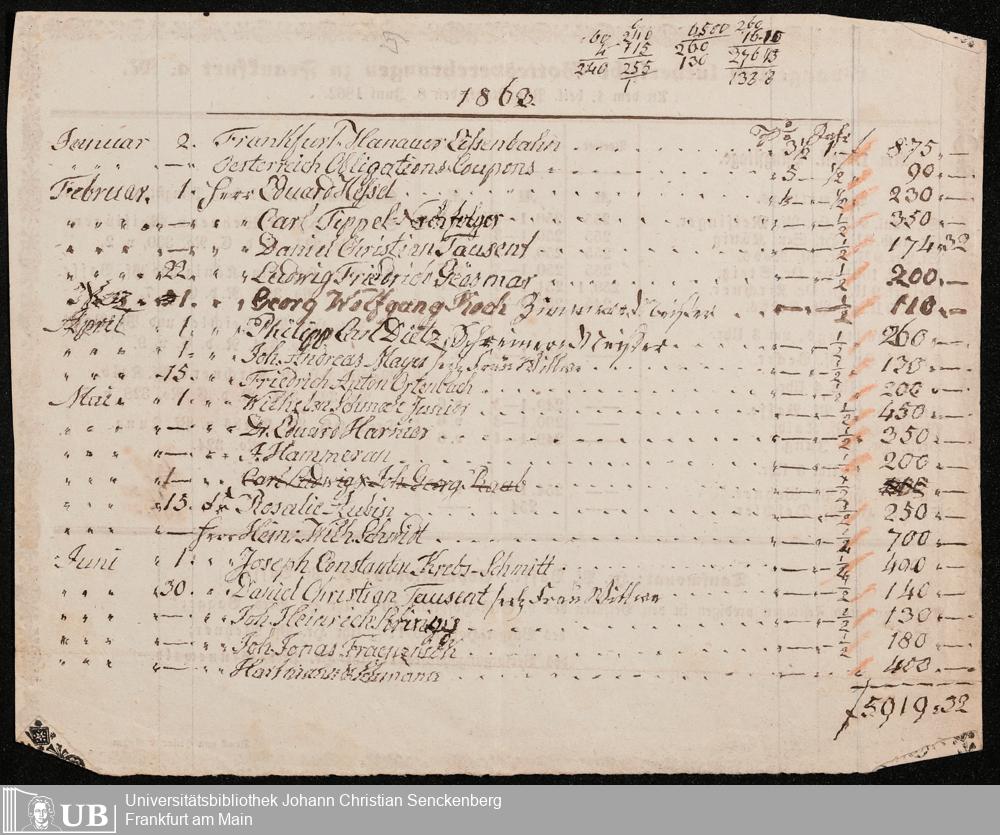 60 240 6500 260
4 715 260 16.10
240 255 130 276 13
138 8
1863.
Januar 2. Frankfurt. Hanauer Eissenbahn 3½ 1 f 875 " —
" " " — " Oesterreich Obligations Coupons 5 ½ " 90 " —
Februar. 1. Herr Eduard " 230 " —
" " " — " " Carl Tippel ½ " 350 " —
" " " — " " Daniel Christian Tausent ½ " 174 " 32
" " " 22 " " Ludwig Friedrich Geissmar ½ " 200 " —
1. " " Georg Wolfgang Koch Zimmerd. Meister ½ " 110 " —
April 1. " " Philipp Carl Dietz, Schreinerd Meister ½ " 260 " —
" " " 1. " " Joh. Andreas Mayer seel. Frau Wittwe ½ " 130 " —
" " " 15. " " Friedrich Anton Ortenbach ½ " 200 " —
Mai 1. " " Wilhelm Junior " 450 " —
" " " — " " Dr. Eduard Harnier ½ " 350 " —
" " " — " " F. Hammeran " 200 " —
" " " 1 " " Carl Ludwig & Joh. Georg Raab
" " " 15. Rosalie Rubin " 250 " —
" " " — Herr Hein. Wilh. Schmidt " 700 " —
Juni 1. " " Joseph Constantin Krebs-Schmitt " 400 " —
" " 30. " " Daniel Christian Tausent seel. Frau Wittwe ½ " 140 " —
" " " — " " Joh. Heinrich ½ " 130 " —
" " " — " " Joh. Jonas ½ " 180 " —
" " " — " " Hartmann & " 400 " —
f 5919 " 32
UB
Universitätsbibliothek Johann Christian Senckenberg
Frankfurt am Main